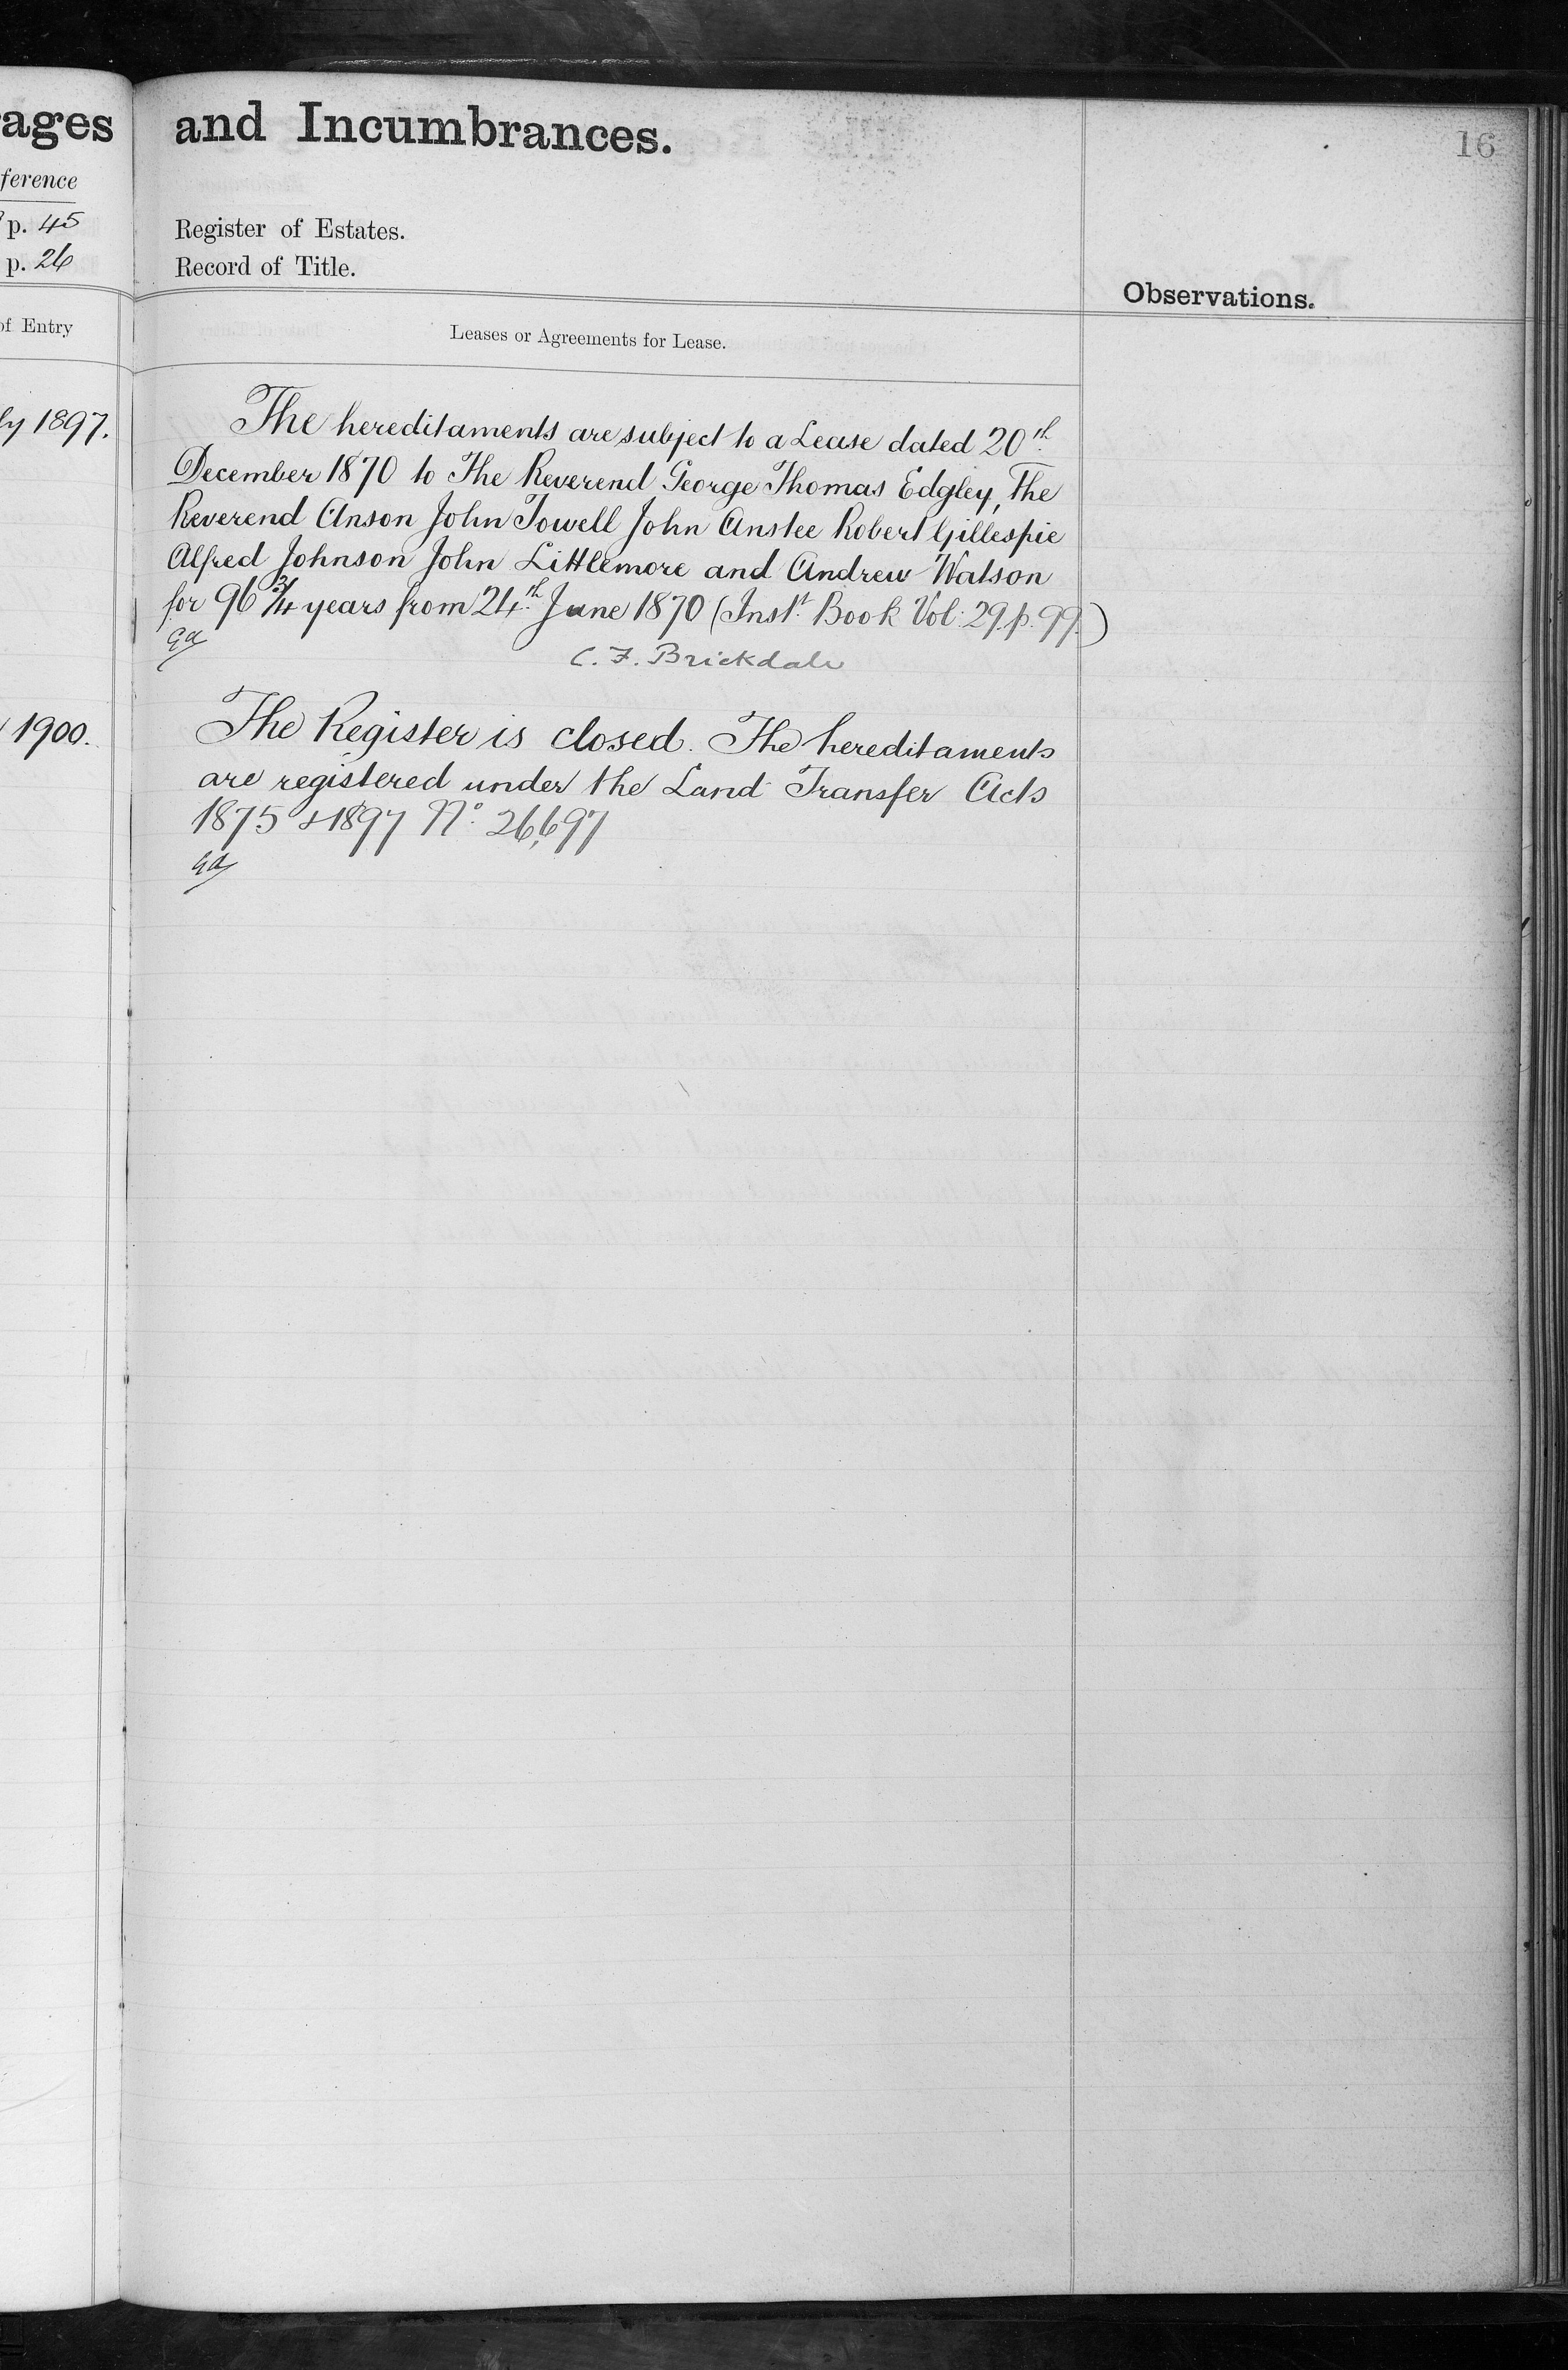 ages and Incumbrances.
16
ference
p. 45 Register of Estates.
p. 26 Record of Title.
Observations.
of Entry Leases or Agreements for Lease.
ly 1897. The hereditaments are subject to a Lease dated 20th
December 1870 to The Reverend George Thomas Edgley, The
Reverend Anson John Towell John Anstee Robert Gillespie
Alfred Johnson John Littlemore and Andrew Watson
for 96 3/4 years from 24th June 1870 (Inst. Book Vol: 29. p. 99.)
C. F. Brickdale
1900. The Register is closed. The hereditaments
are registered under the Land Transfer Acts
1875 & 1897 No. 26,697